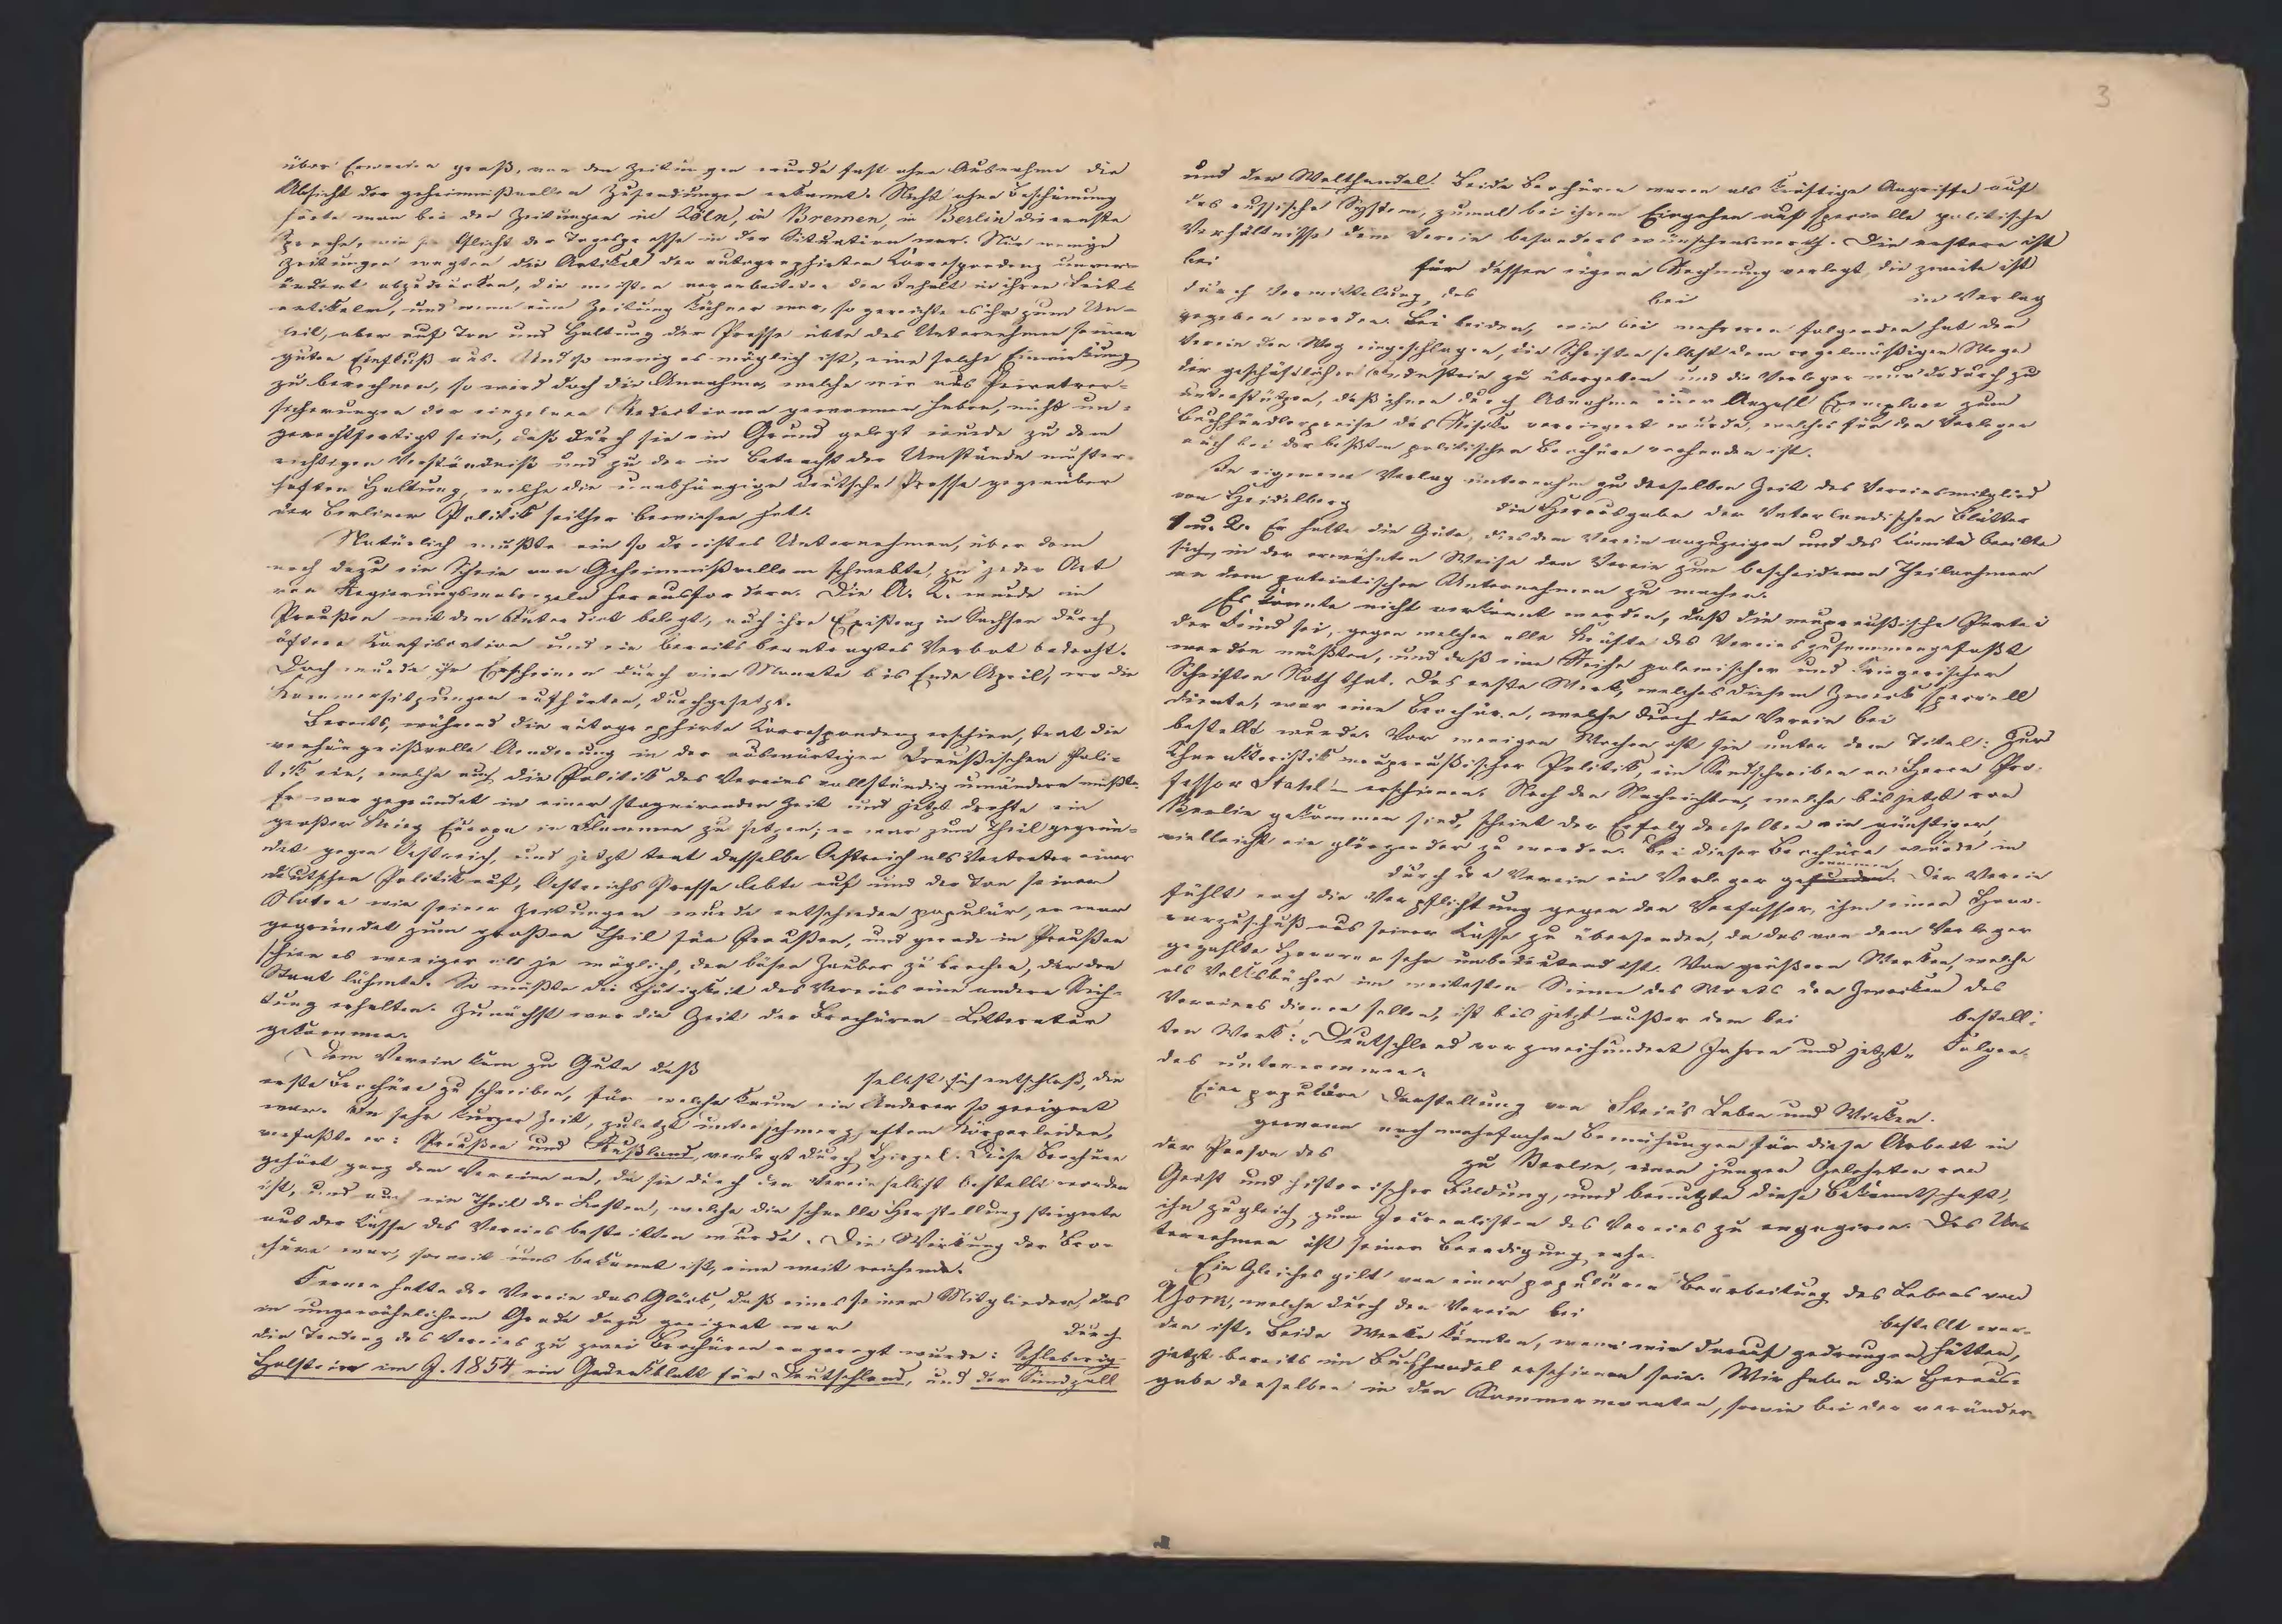 über Erwarten groß, von den Zeitungen wurde fast ohne Ausnahme die
Absicht der geheimnißvollen Zusendungen erkannt. Nicht ohne Beschämung
hörte man bei den Zeitungen in Köln, in Bremen, in Berlin die ernste
Sprache, wie sie Pflicht der Tagespresse in der Situation war. Nur wenige
Zeitungen wagten die Artikel der autographirten Correspondenz unver-
ändert abzudrucken, die meisten verarbeiteten den Inhalt in ihren Leit-
artikeln, und wenn eine Zeitung kühner war, so gereichte es ihr zum Un-
heil, aber auf Ton und Haltung der Presse übte das Unternehmen seinen
guten Einfluß aus. Und so wenig es möglich ist, eine solche Einwirkung
zu berechnen, so wird doch die Annahme, welche wir aus Privatver-
sicherungen der einzelnen Redactionen gewonnen haben, nicht un-
gerechtfertigt sein, daß durch sie ein Grund gelegt wurde zu dem
richtigen Verständniß und zu der in Betracht der Umstände muster-
haften Haltung, welche die unabhängige deutsche Presse gegenüber
der Berliner Politik seither bewiesen hat.
Natürlich mußte ein so dreistes Unternehmen, über dem
noch dazu ein Schein von Geheimnißvollem schwebte, zu jeder Art
von Regierungsmaßregeln herausfordern. Die A. C. wurde in
Preußen mit dem Interdict belegt, auch ihre Existenz in Sachsen durch
öftere Confiscation und ein bereits beantragtes Verbot bedroht.
Doch wurde ihr Erscheinen durch vier Monate bis Ende April, wo die
Kammersitzungen aufhörten, durchgesetzt.
Bereits, während die autographirte Correspondenz erschien, trat die
verhängnißvolle Aenderung in der auswärtigen Preußischen Poli-
tik ein, welche auch die Politik des Vereins vollständig umändern mußte.
Er war gegründet in einer stagnirenden Zeit und jetzt drohte ein
großer Krieg Europa in Flammen zu setzen; er war zum Theil gegrün-
det gegen Oestreich, und jetzt trat dasselbe Oestreich als Vertreter einer
deutschen Politik auf, Oestreichs Presse lebte auf und der Ton seiner
Noten wie seiner Zeitungen wurde entschieden populär, er war
gegründet zum großen Theil für Preußen, und gerade in Preußen
schien es weniger als je möglich, den bösen Zauber zu brechen, der den
Staat lähmte. So mußte die Thätigkeit des Vereins eine andere Rich-
tung erhalten. Zunächst war die Zeit der Brochüren-Litteratur
gekommen.
Dem Verein kam zu Gute daß
selbst sich entschloß, die
erste Brochüre zu schreiben, für welche kaum ein Anderer so geeignet
war. In sehr kurzer Zeit, zuletzt unter schmerzhaftem Körperleiden,
verfaßte er: Preußen und Rußland, verlegt durch Hirzel. Diese Brochüre
gehört ganz dem Vereine an, da sie durch den Verein selbst bestellt worden
ist, und auch ein Theil der Kosten, welche die schnelle Herstellung steigerte
aus der Casse des Vereins bestritten wurde. Die Wirkung der Bro-
chüre war, soweit uns bekannt ist, eine weit reichende.
Ferner hatte der Verein das Glück, daß eines seiner Mitglieder, das
in ungewöhnlichem Grade dazu geeignet war durch
die Tendenz des Vereins zu zwei Brochüren angeregt wurde: Schleswig-
Holstein im J. 1854 ein Gedenkblatt für Deutschland, und der Sundzoll
3
und der Welthandel. Beide Brochüren waren als kräftige Angriffe auf
das russische System, zumal bei ihrem Eingehen auf specielle politische
Verhältnisse dem Verein besonders wünschenswerth. Die erstere ist
bei für dessen eigene Rechnung verlegt, die zweite ist
durch Vermittelung des bei in Verlag
gegeben worden. Bei beiden, wie bei mehreren folgenden hat der
Verein den Weg eingeschlagen, die Schriften selbst dem regelmäßigen Wege
der geschäftlichen Industrie zu übergeben und die Verleger nur dadurch zu
unterstützen, daß ihnen durch Abnahme einer Anzahl Exemplare zum
Buchhändlerpreise das Risiko verringert wurde, welches für den Verleger
auch bei der besten politischen Brochüre vorhanden ist.
In eigenem Verlag unternahm zu derselben Zeit das Vereinsmitglied
von Heidelberg die Herausgabe der Vaterlandischen Blätter
1 u. 2. Er hatte die Güte, dies dem Verein anzuzeigen und das Comité beeilte
sich, in der erwähnten Weise den Verein zum bescheidenen Theilnehmer
an dem patriotischen Unternehmen zu machen.
Es konnte nicht verkannt werden, daß die neupreußische Partei
der Feind sei, gegen welchen alle Kräfte des Vereins zusammengefaßt
werden müßten, und daß eine Reihe polemischer und kriegerischer
Schriften Noth that. Das erste Werk, welches diesem Zweck speciell
diente, war eine Brochüre, welche durch den Verein bei
bestellt wurde. Vor wenigen Wochen ist sie unter dem Titel: Zur
Charakteristik neupreußischer Politik, ein Sendschreiben an Herrn Pro-
fessor Stahl – erschienen. Nach den Nachrichten, welche bis jetzt von
Berlin gekommen sind, scheint der Erfolg derselben ein günstiger,
vielleicht ein glänzender zu werden. Bei dieser Brochüre wurde in
durch den Verein ein Verleger gefunden. Der Verein
fühlt auch die Verpflichtung gegen den Verfasser, ihm einen Hono-
rarzuschuß aus seiner Casse zu übersenden, da das von dem Verleger
gezahlte Honorar sehr unbedeutend ist. Von größern Werken, welche
als Volksbücher im weitesten Sinne des Worts den Zwecken des
Vereines dienen sollen, ist bis jetzt außer dem bei bestell-
ten Werk: „Deutschland vor zweihundert Jahren und jetzt" Folgen-
des unternommen.
Eine populäre Darstellung von Stein's Leben und Wirken.
gewann nach mehrfachen Bemühungen für diese Arbeit in
der Person des zu Berlin, einen jungen Gelehrten von
Geist und historischer Bildung, und benutzte diese Bekanntschaft,
ihn zugleich zum Journalisten des Vereins zu engagiren. Das Un-
ternehmen ist seiner Beendigung nahe.
Ein Gleiches gilt von einer populären Bearbeitung des Lebens von
York, welche durch den Verein bei bestellt wor-
den ist. Beide Werke könnten, wenn wir darauf gedrungen hätten,
jetzt bereits im Buchhandel erschienen sein. Wir haben die Heraus-
gabe derselben in den Sommermonaten, sowie bei der veränder-